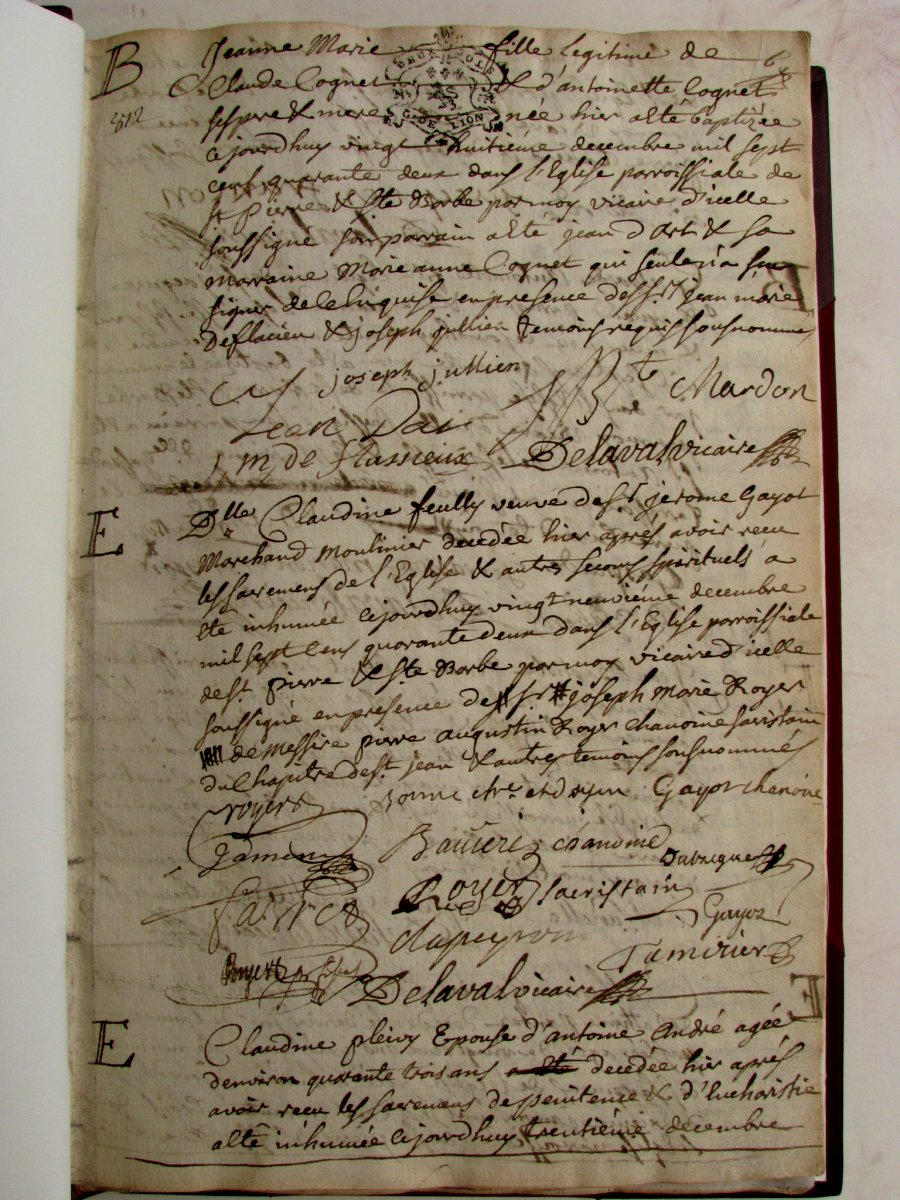 B
Jeanne Marie fille legitime de
Claude Cognet & d'antoinette Cognet
ses pere & mere née hier a été baptizée
cejourdhuy vingt huitiéme decembre mil sept
cens quarante deux dans l'Eglise parroissiale de
st pierre & ste Barbe par moy vicaire d'icelle
soussigné son parrain a été jean d'Art & sa
marraine Marie anne Cognet qui seule n'a su
signer de ce enquise en presence des srs jean marie
Deflacieu & joseph jullien temoins requis sousnommés
G. DE LION
joseph jullien
Chardon
Jean Dar
j m de flassieux Delaval vicaire
E
Dlle Claudine feully veuve de sr jerome Gayot
Marchand Moulinier decedée hier aprés avoir recu
les sacremens de l'Eglise & autres secours spirituels a
été inhumée cejourdhuy vingt neuviéme decembre
mil sept cens quarante deux dans l'Eglise parroissiale
de st. pierre & ste Barbe par moy vicaire d'icelle
soussigné en presence de sr joseph marie Royer
de Messire pierre augustin Royer chanoine sacristain
du Chapitre de st. jean & autres temoins sousnommés
royer Gayot chanoine
jamen chanoine
Dubreque
Royer sacristain
Gayot
dupeyron
Tamizier
Delaval vicaire
E
Claudine pleivy Epouse d'antoine André agée
d'environ quarante trois ans a été decedée hier aprés
avoir recu les sacremens de penitence & d'Eucharistie
a été inhumée cejourdhuy trentiéme decembre